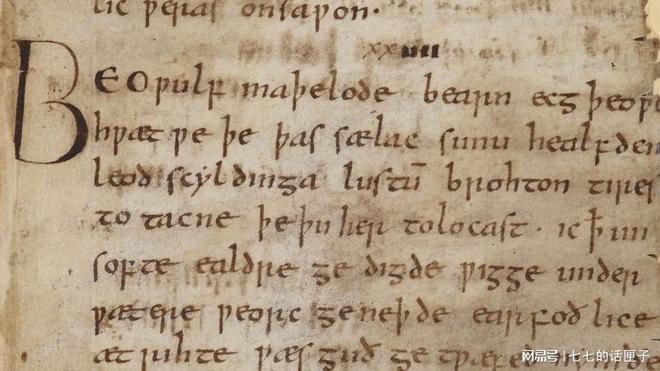 lic ƿeras onsaƿon·
xxiiii
BEOƿulf maþelode bearn ecgþeoƿ
hƿæt ƿe þe þas sælac sunu healfden
leod scyldinga lustū brohton tires
to tacne þe þu her tolocast· ic ꝥ un
softe ealdre ge digde ƿigge under
ƿætere ƿeorc geneþde earfoð lice
æt rihte ƿæs guð ge tƿæfed
网易号 | 七七的话匣子